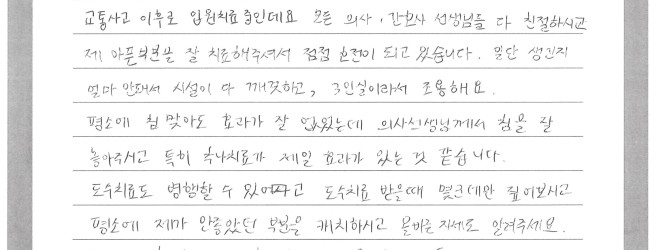 교통사고 이후로 입원치료 중인데요 모든 의사, 간호사 선생님들 다 친절하시고
제 아픈부분을 잘 치료해주셔서 점점 호전이 되고 있습니다. 일단 생긴지
얼마 안돼서 시설이 다 깨끗하고, 3인실이라서 조용해요.
평소에 침 맞아도 효과가 잘 없었는데 의사선생님께서 침을 잘
놓아주시고 특히 추나치료가 제일 효과가 있는 것 같습니다.
도수치료도 병행할 수 있어고 도수치료 받을때 몇군데만 짚어보시고
평소에 제가 안좋았던 부분을 캐치하시고 올바른 자세도 알려주세요.